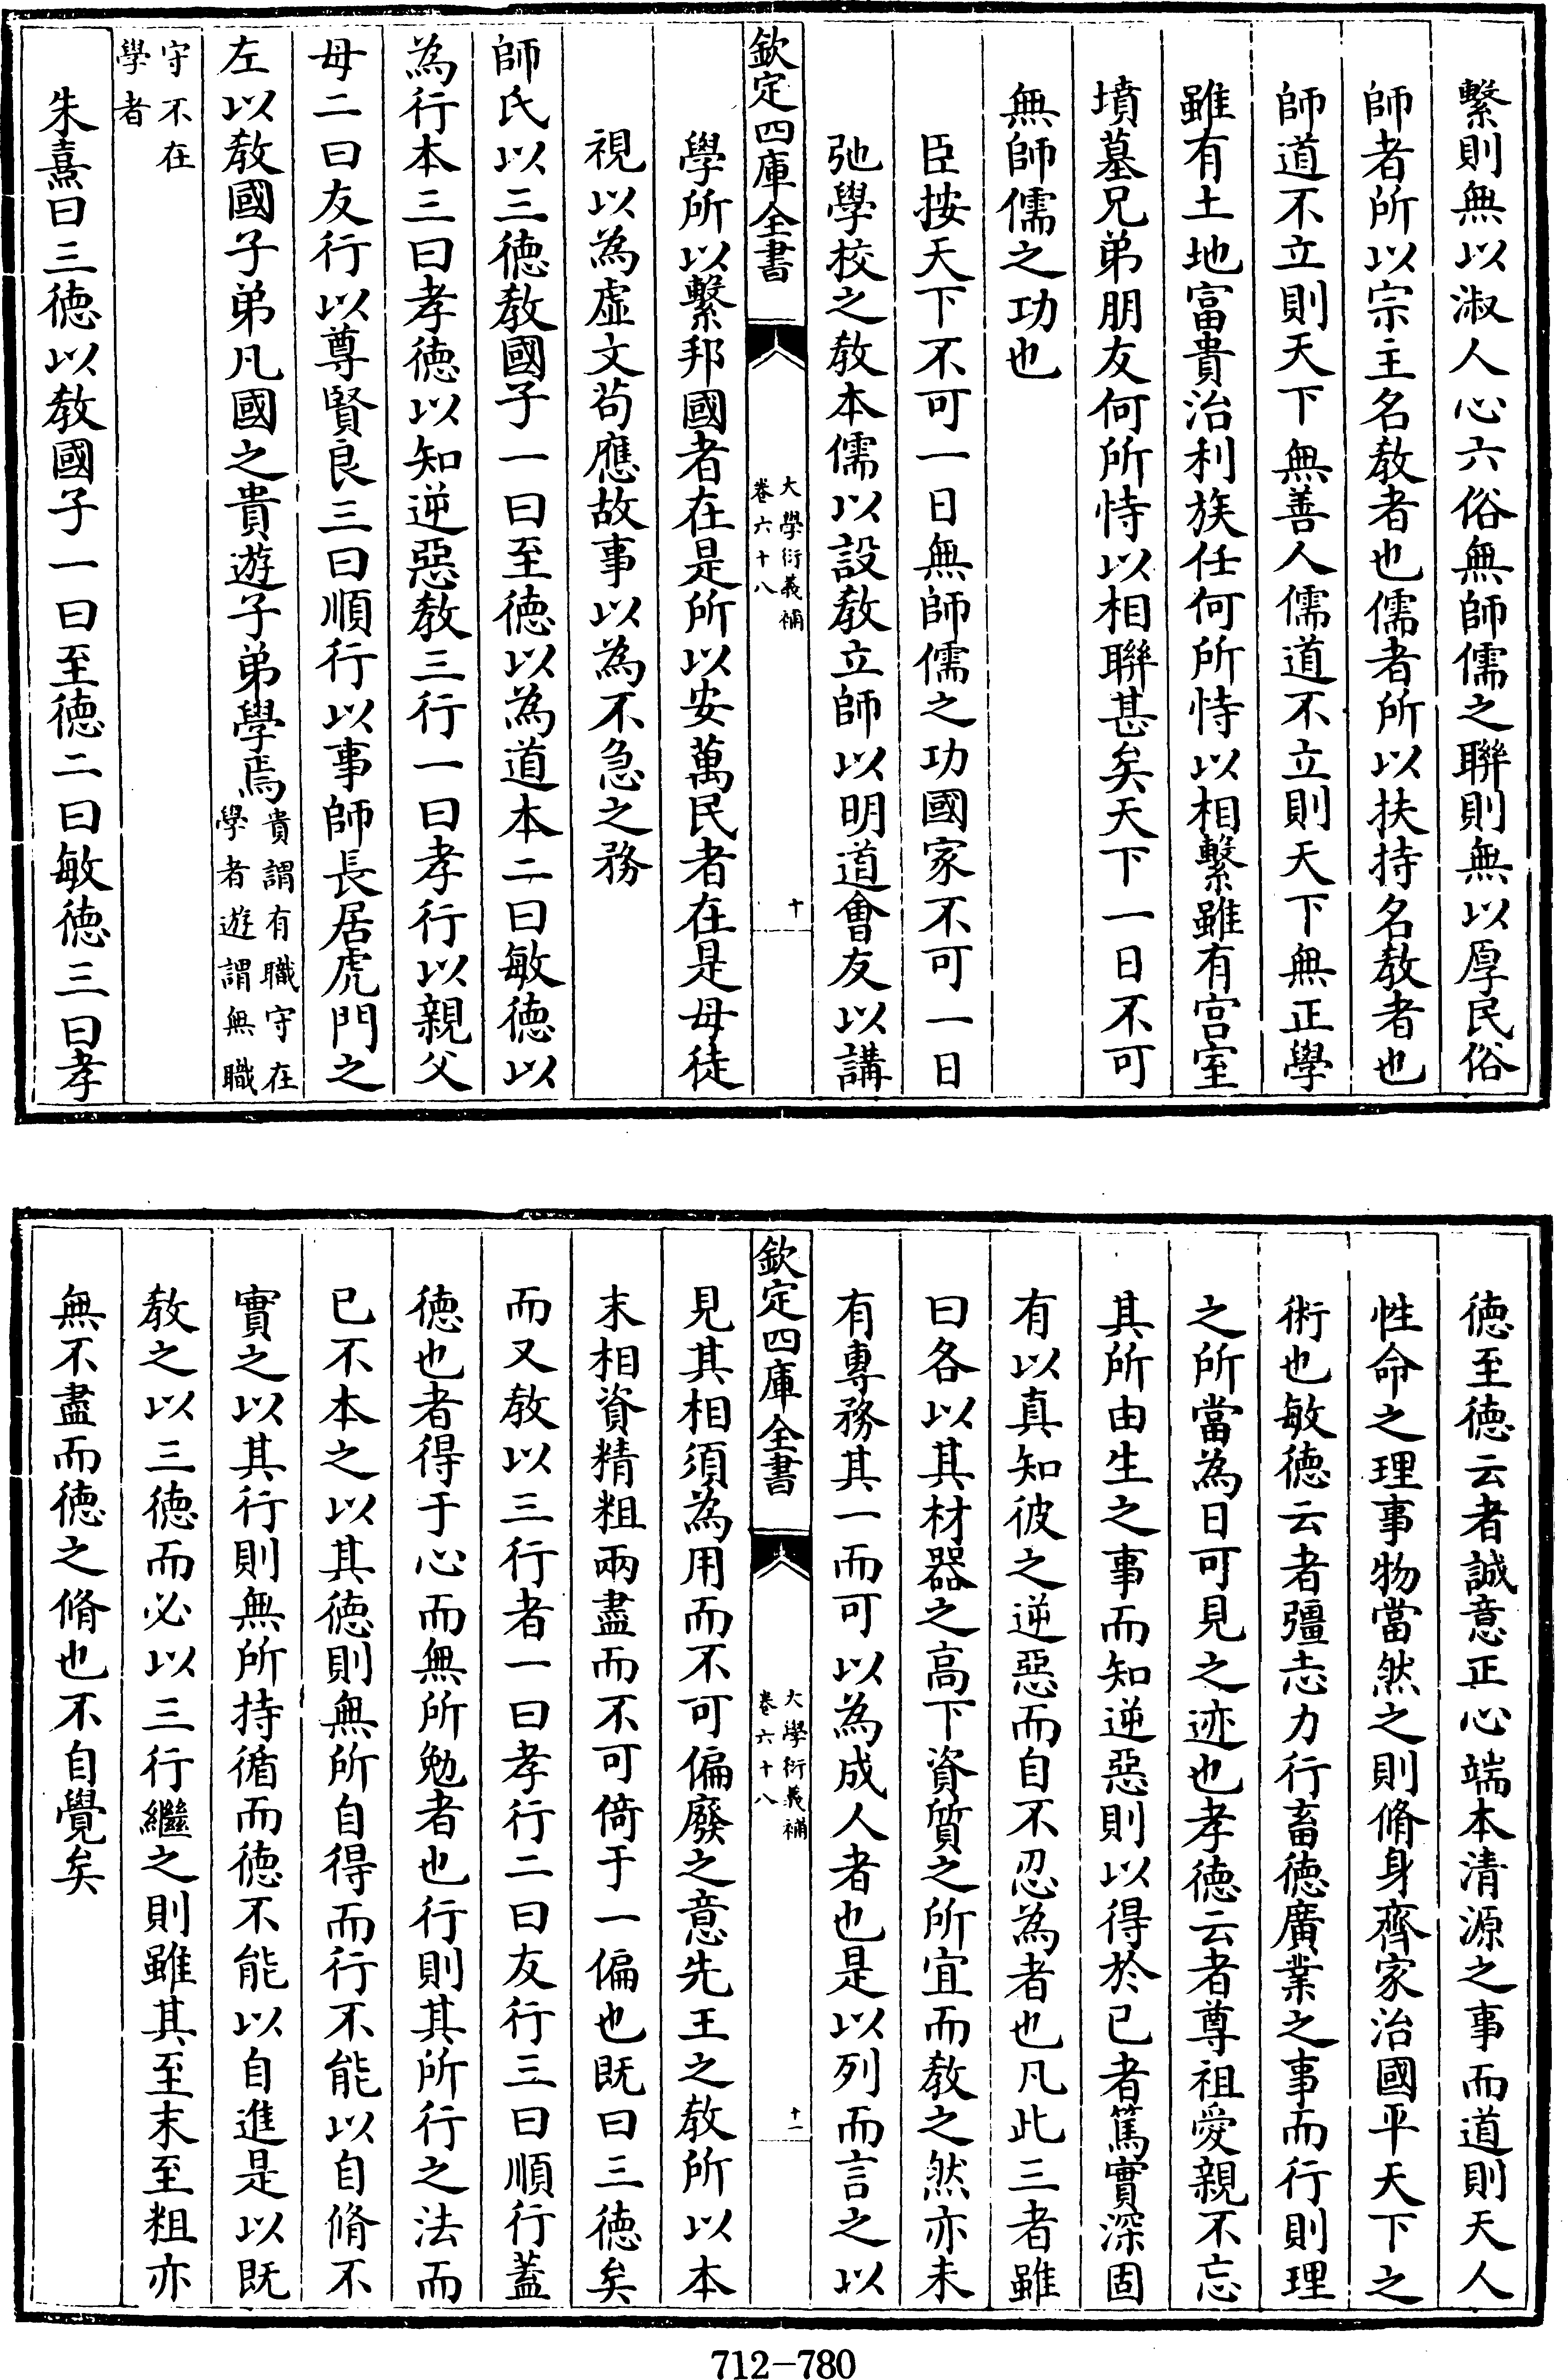 繫則無以淑人心六俗無師儒之聯則無以厚民俗
師者所以宗主名教者也儒者所以扶持名教者也
師道不立則天下無善人儒道不立則天下無正學
雖有土地富貴治利族任何所恃以相繫雖有宫室
墳墓兄弟朋友何所恃以相聯甚矣天下一日不可
無師儒之功也
臣按天下不可一日無師儒之功國家不可一日
弛學校之教本儒以設教立師以明道會友以講
欽定四庫全書
大學衍義補
卷六十八
十
學所以繫邦國者在是所以安萬民者在是毋徒
視以為虛文苟應故事以為不急之務
師氏以三德教國子一曰至德以為道本二曰敏德以
為行本三曰孝德以知逆惡教三行一曰孝行以親父
母二曰友行以尊賢良三曰順行以事師長居虎門之
左以教國子弟凡國之貴遊子弟學焉貴謂有職守在
學者遊謂無職
守不在
學者
朱熹曰三德以教國子一曰至德二曰敏德三曰孝
德至德云者誠意正心端本清源之事而道則天人
性命之理事物當然之則脩身齊家治國平天下之
術也敏德云者彊志力行畜德廣業之事而行則理
之所當為日可見之迹也孝德云者尊祖愛親不忘
其所由生之事而知逆惡則以得於己者篤實深固
有以真知彼之逆惡而自不忍為者也凡此三者雖
曰各以其材器之高下資質之所宜而教之然亦未
有專務其一而可以為成人者也是以列而言之以
欽定四庫全書
大學衍義補
卷六十八
十一
見其相須為用而不可偏廢之意先王之教所以本
末相資精粗兩盡而不可倚于一偏也既曰三德矣
而又教以三行者一曰孝行二曰友行三曰順行蓋
德也者得于心而無所勉者也行則其所行之法而
已不本之以其德則無所自得而行不能以自脩不
實之以其行則無所持循而德不能以自進是以既
教之以三德而必以三行繼之則雖其至末至粗亦
無不盡而德之脩也不自覺矣
712-780